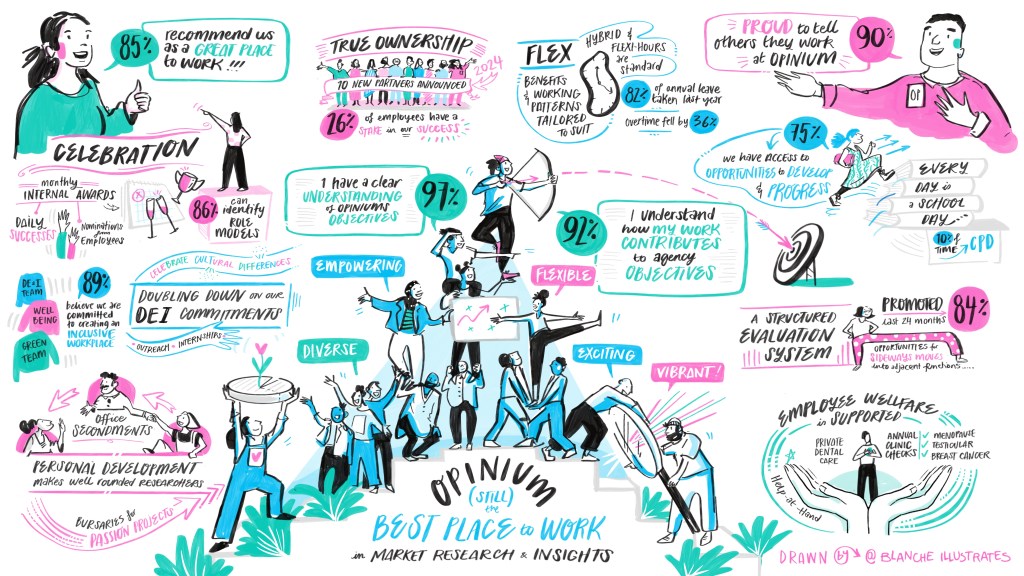 85%
recommend us
as a GREAT PLACE
to WORK !!!
TRUE OWNERSHIP
10 NEW PARTNERS ANNOUNCED
2024
26%
of employees have a
STAKE in our SUCCESS
FLEX
HYBRID &
FLEXI-HOURS
are
standard
BENEFITS
& WORKING
PATTERNS
TAILORED
to SUIT
82%
of annual leave
taken last year
overtime fell by 36%
PROUD to tell
others they work
at OPINIUM
90%
OP
CELEBRATION
monthly
INTERNAL AWARDS
DAILY
SUCCESSES
Nominations
from
Employees
86%
can
identify
ROLE
MODELS
I have a clear
UNDERSTANDING
of OPINIUMS
OBJECTIVES
97%
92%
I understand
how MY WORK
CONTRIBUTES
to agency
OBJECTIVES
75%
we have ACCESS to
OPPORTUNITIES to DEVELOP
& PROGRESS
EVERY
DAY is
a SCHOOL
DAY...
10% of
TIME CPD
DE&I
TEAM
WELL
BEING
GREEN
TEAM
89%
believe we are
committed
to creating an
INCLUSIVE
WORKPLACE
CELEBRATE CULTURAL DIFFERENCES
DOUBLING DOWN on our
DEI COMMITMENTS
• OUTREACH • INTERNSHIPS
EMPOWERING
FLEXIBLE
DIVERSE
EXCITING
VIBRANT!
A STRUCTURED
EVALUATION
SYSTEM
PROMOTED
last 24 months
84%
OPPORTUNITIES for
SIDEWAYS MOVES
into adjacent functions....
Office
SECONDMENTS
PERSONAL DEVELOPMENT
makes well rounded researchers
BURSARIES for
PASSION PROJECTS
OPINIUM
(STILL)
the
BEST PLACE to WORK
in MARKET RESEARCH & INSIGHTS
EMPLOYEE WELLFARE
is SUPPORTED
PRIVATE
DENTAL
CARE
ANNUAL
CLINIC
CHECKS
✓ MENOPAUSE
✓ TESTICULAR
✓ BREAST CANCER
Help-at-Hand
DRAWN by @ BLANCHE ILLUSTRATES